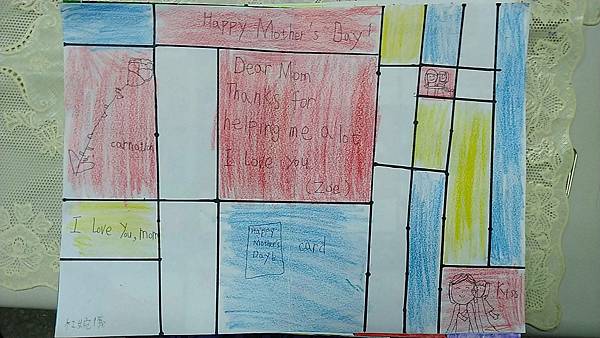 Happy Mother's Day!
Dear Mom
Thanks for
helping me a lot
I love you
(Zoe)
carnation
I love you, mom
Happy
Mother's
Day!
card
Kiss